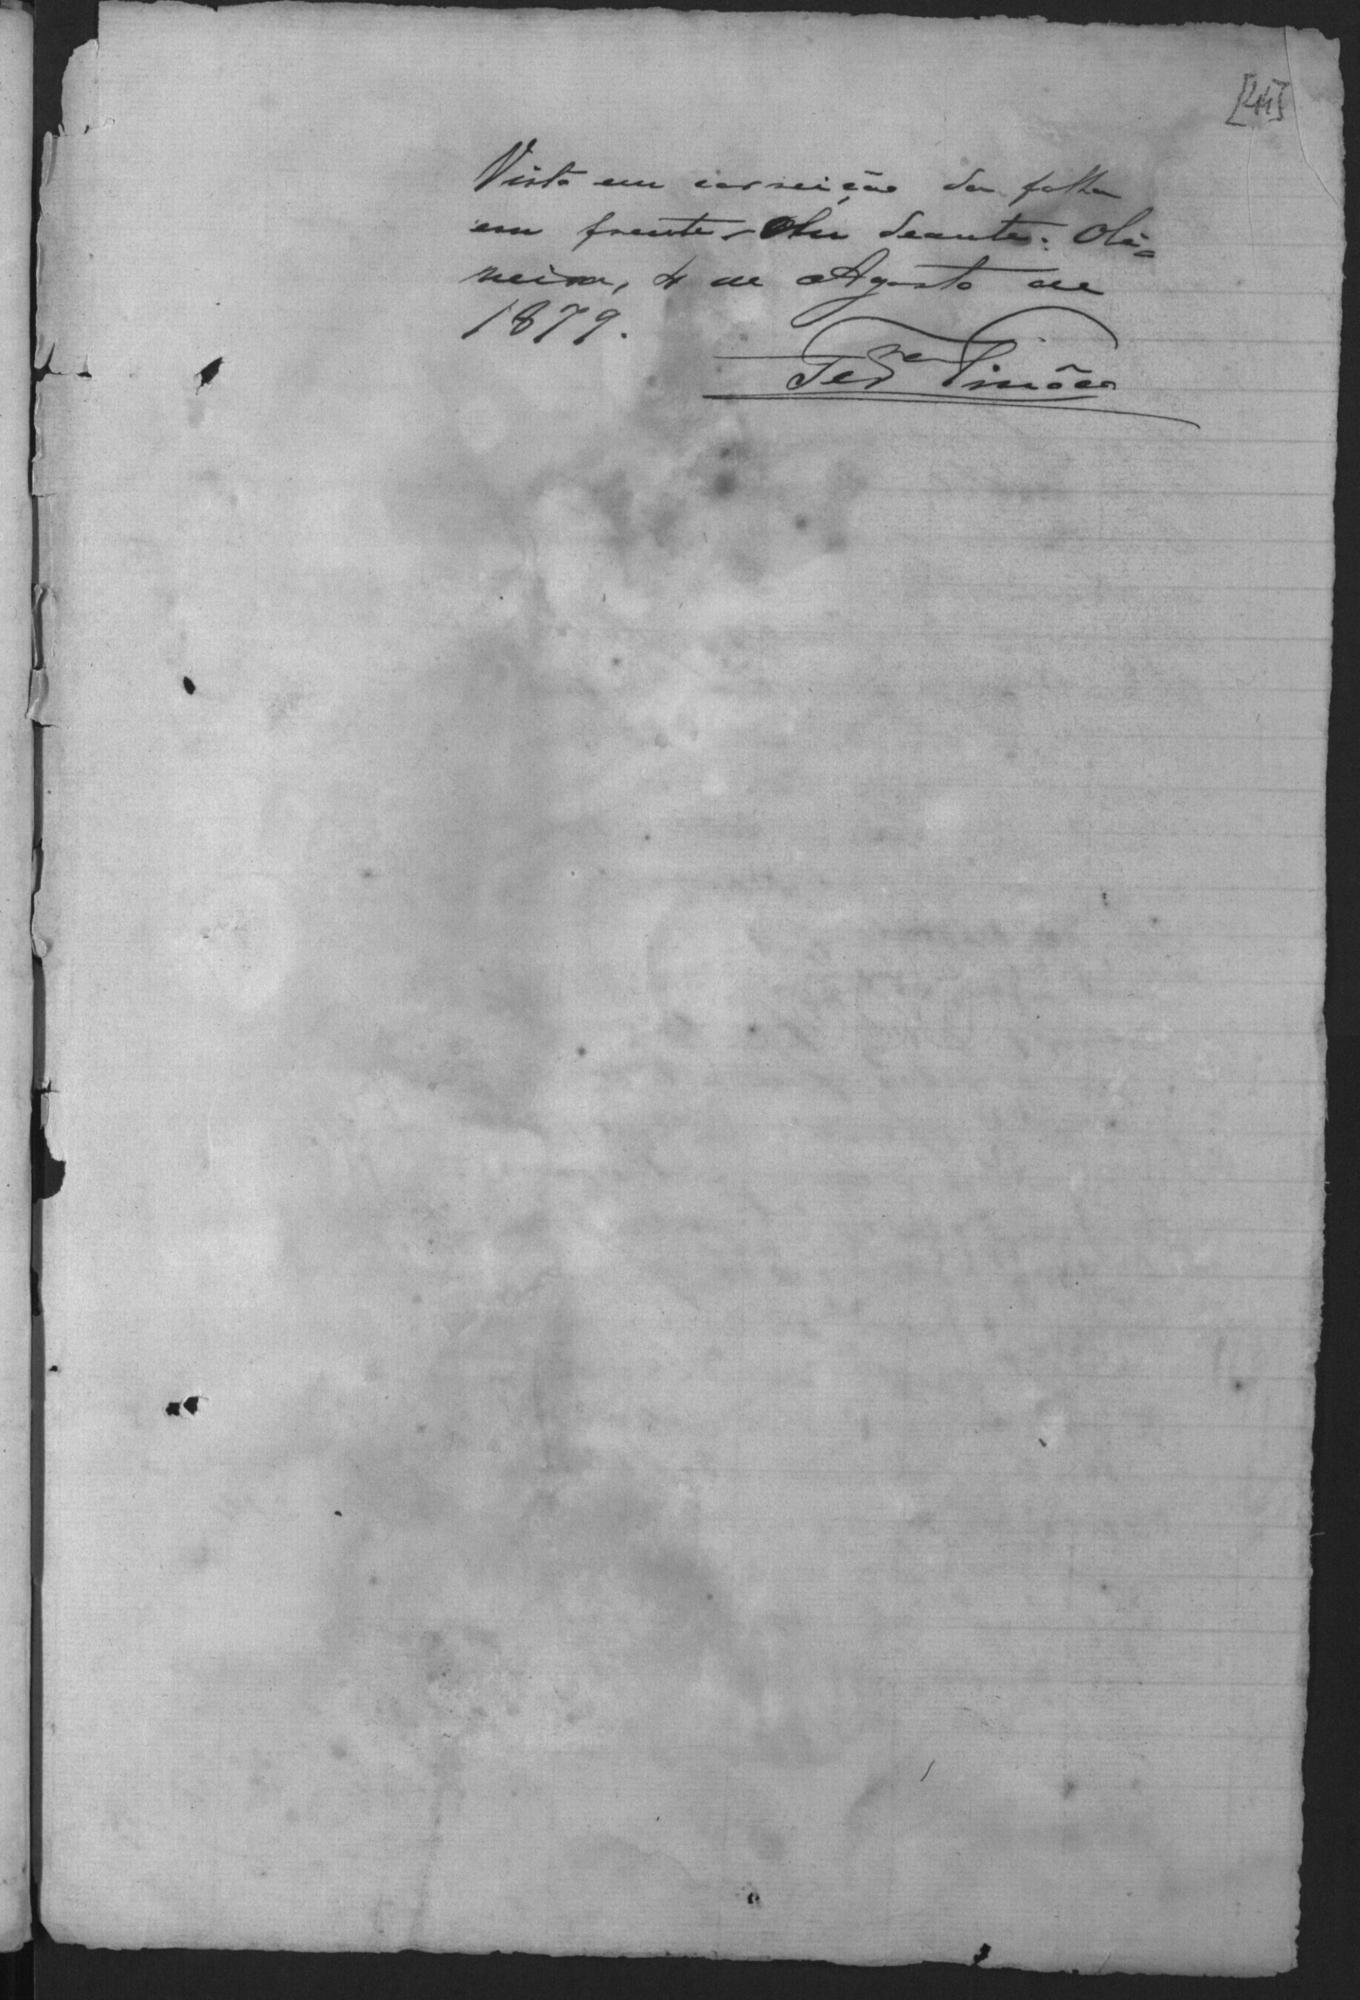 [44]
Visto em correição da folha
em frente em deante. Oli-
veira, 4 de Agosto de
1879.
Ferra Simões